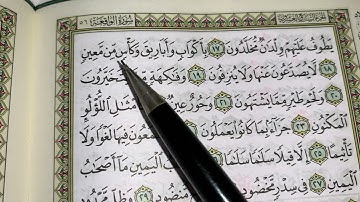 سورة الواقعة ٥٦
يطوف عليهم ولدن مخلدون ١٧ بأكواب وأباريق وكأس من معين
١٨ لا يصدعون عنها ولا ينزفون ١٩ وفكهة مما يتخيرون
٢٠ ولحم طير مما يشتهون ٢١ وحور عين ٢٢ كأمثل اللؤلؤ
المكنون ٢٣ جزاء بما كانوا يعملون ٢٤ يسمعون فيها لغوا ولا
تأثيما ٢٥ إلا قيلا سلما سلما ٢٦ اليمين ما أصحب
اليمين ٢٧ في سدر مخضود ٢٨ منضود ٢٩ وظل ممدود